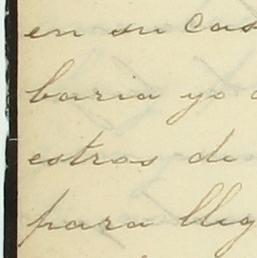 en su cas
baria yo
estros de
para lleg